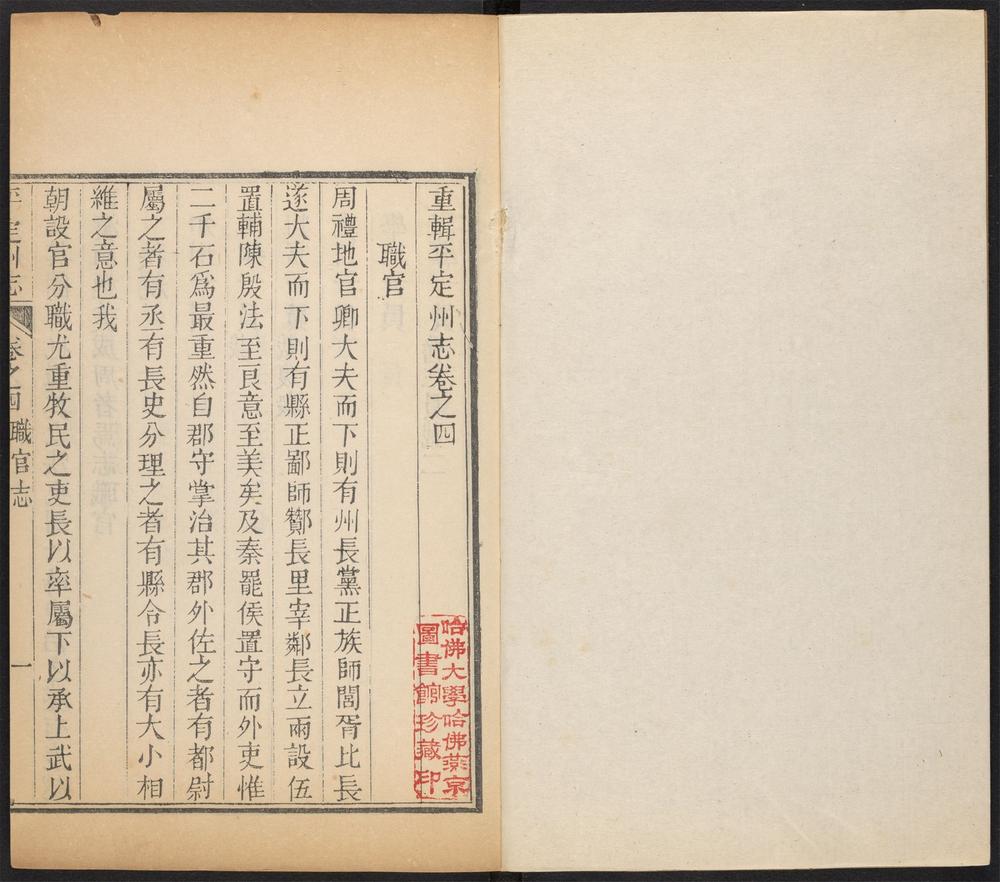 重輯平定州志卷之四
職官
周禮地官卿大夫而下則有州長黨正族師閭胥比長
遂大夫而下則有縣正鄙師酇長里宰鄰長立兩設伍
置輔陳殷法至良意至美矣及秦罷侯置守而外吏惟
二千石爲最重然自郡守掌治其郡外佐之者有都尉
屬之者有丞有長史分理之者有縣令長亦有大小相
維之意也我
朝設官分職尤重牧民之吏長以率屬下以承上武以
平定州志
卷之四
職官志
一
哈佛大學哈佛燕京
圖書館珍藏印